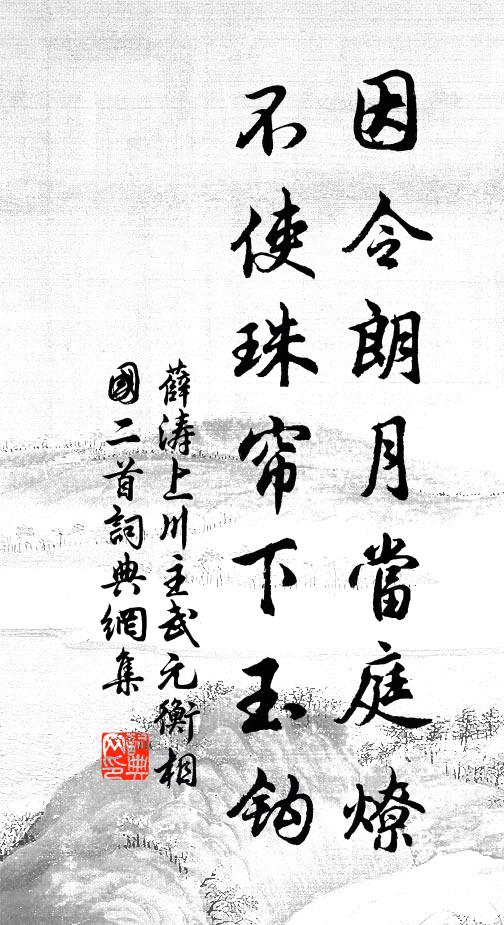 因令朗月當庭燎
不使珠帘下玉鈎
薛涛上川主武元衡相
國二首詞典網集